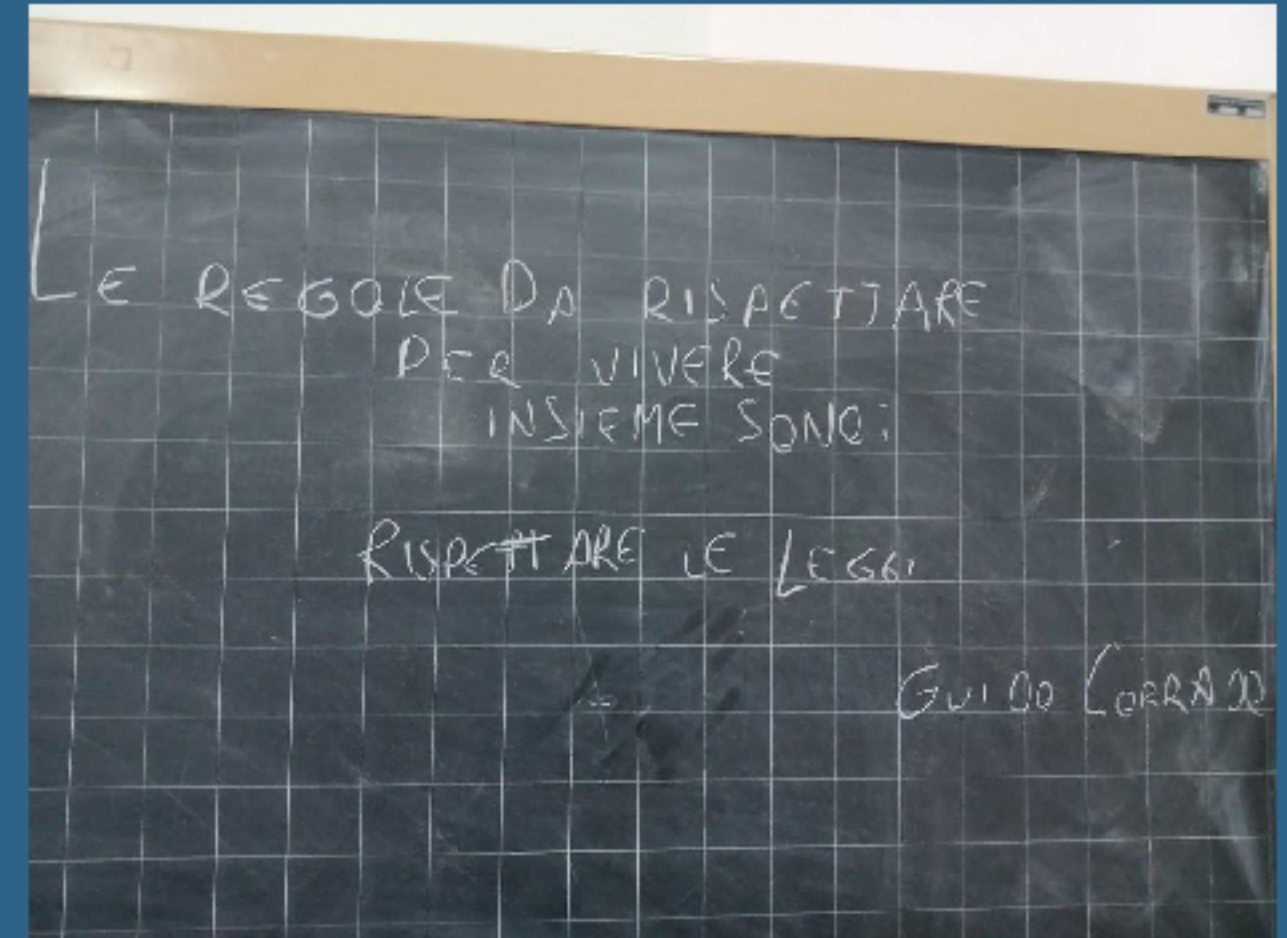 LE REGOLE DA RISPETTARE
PER VIVERE
INSIEME SONO:
RISPETTARE LE LEGGI
GUIDO CORRADO